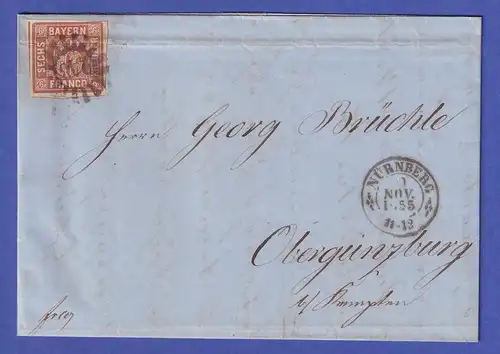 BAYERN
SECHS
FRANCO
Herrn Georg Brüchle
NÜRNBERG
NOV.
1855
11-12
Obergünzburg
b/ Kempten